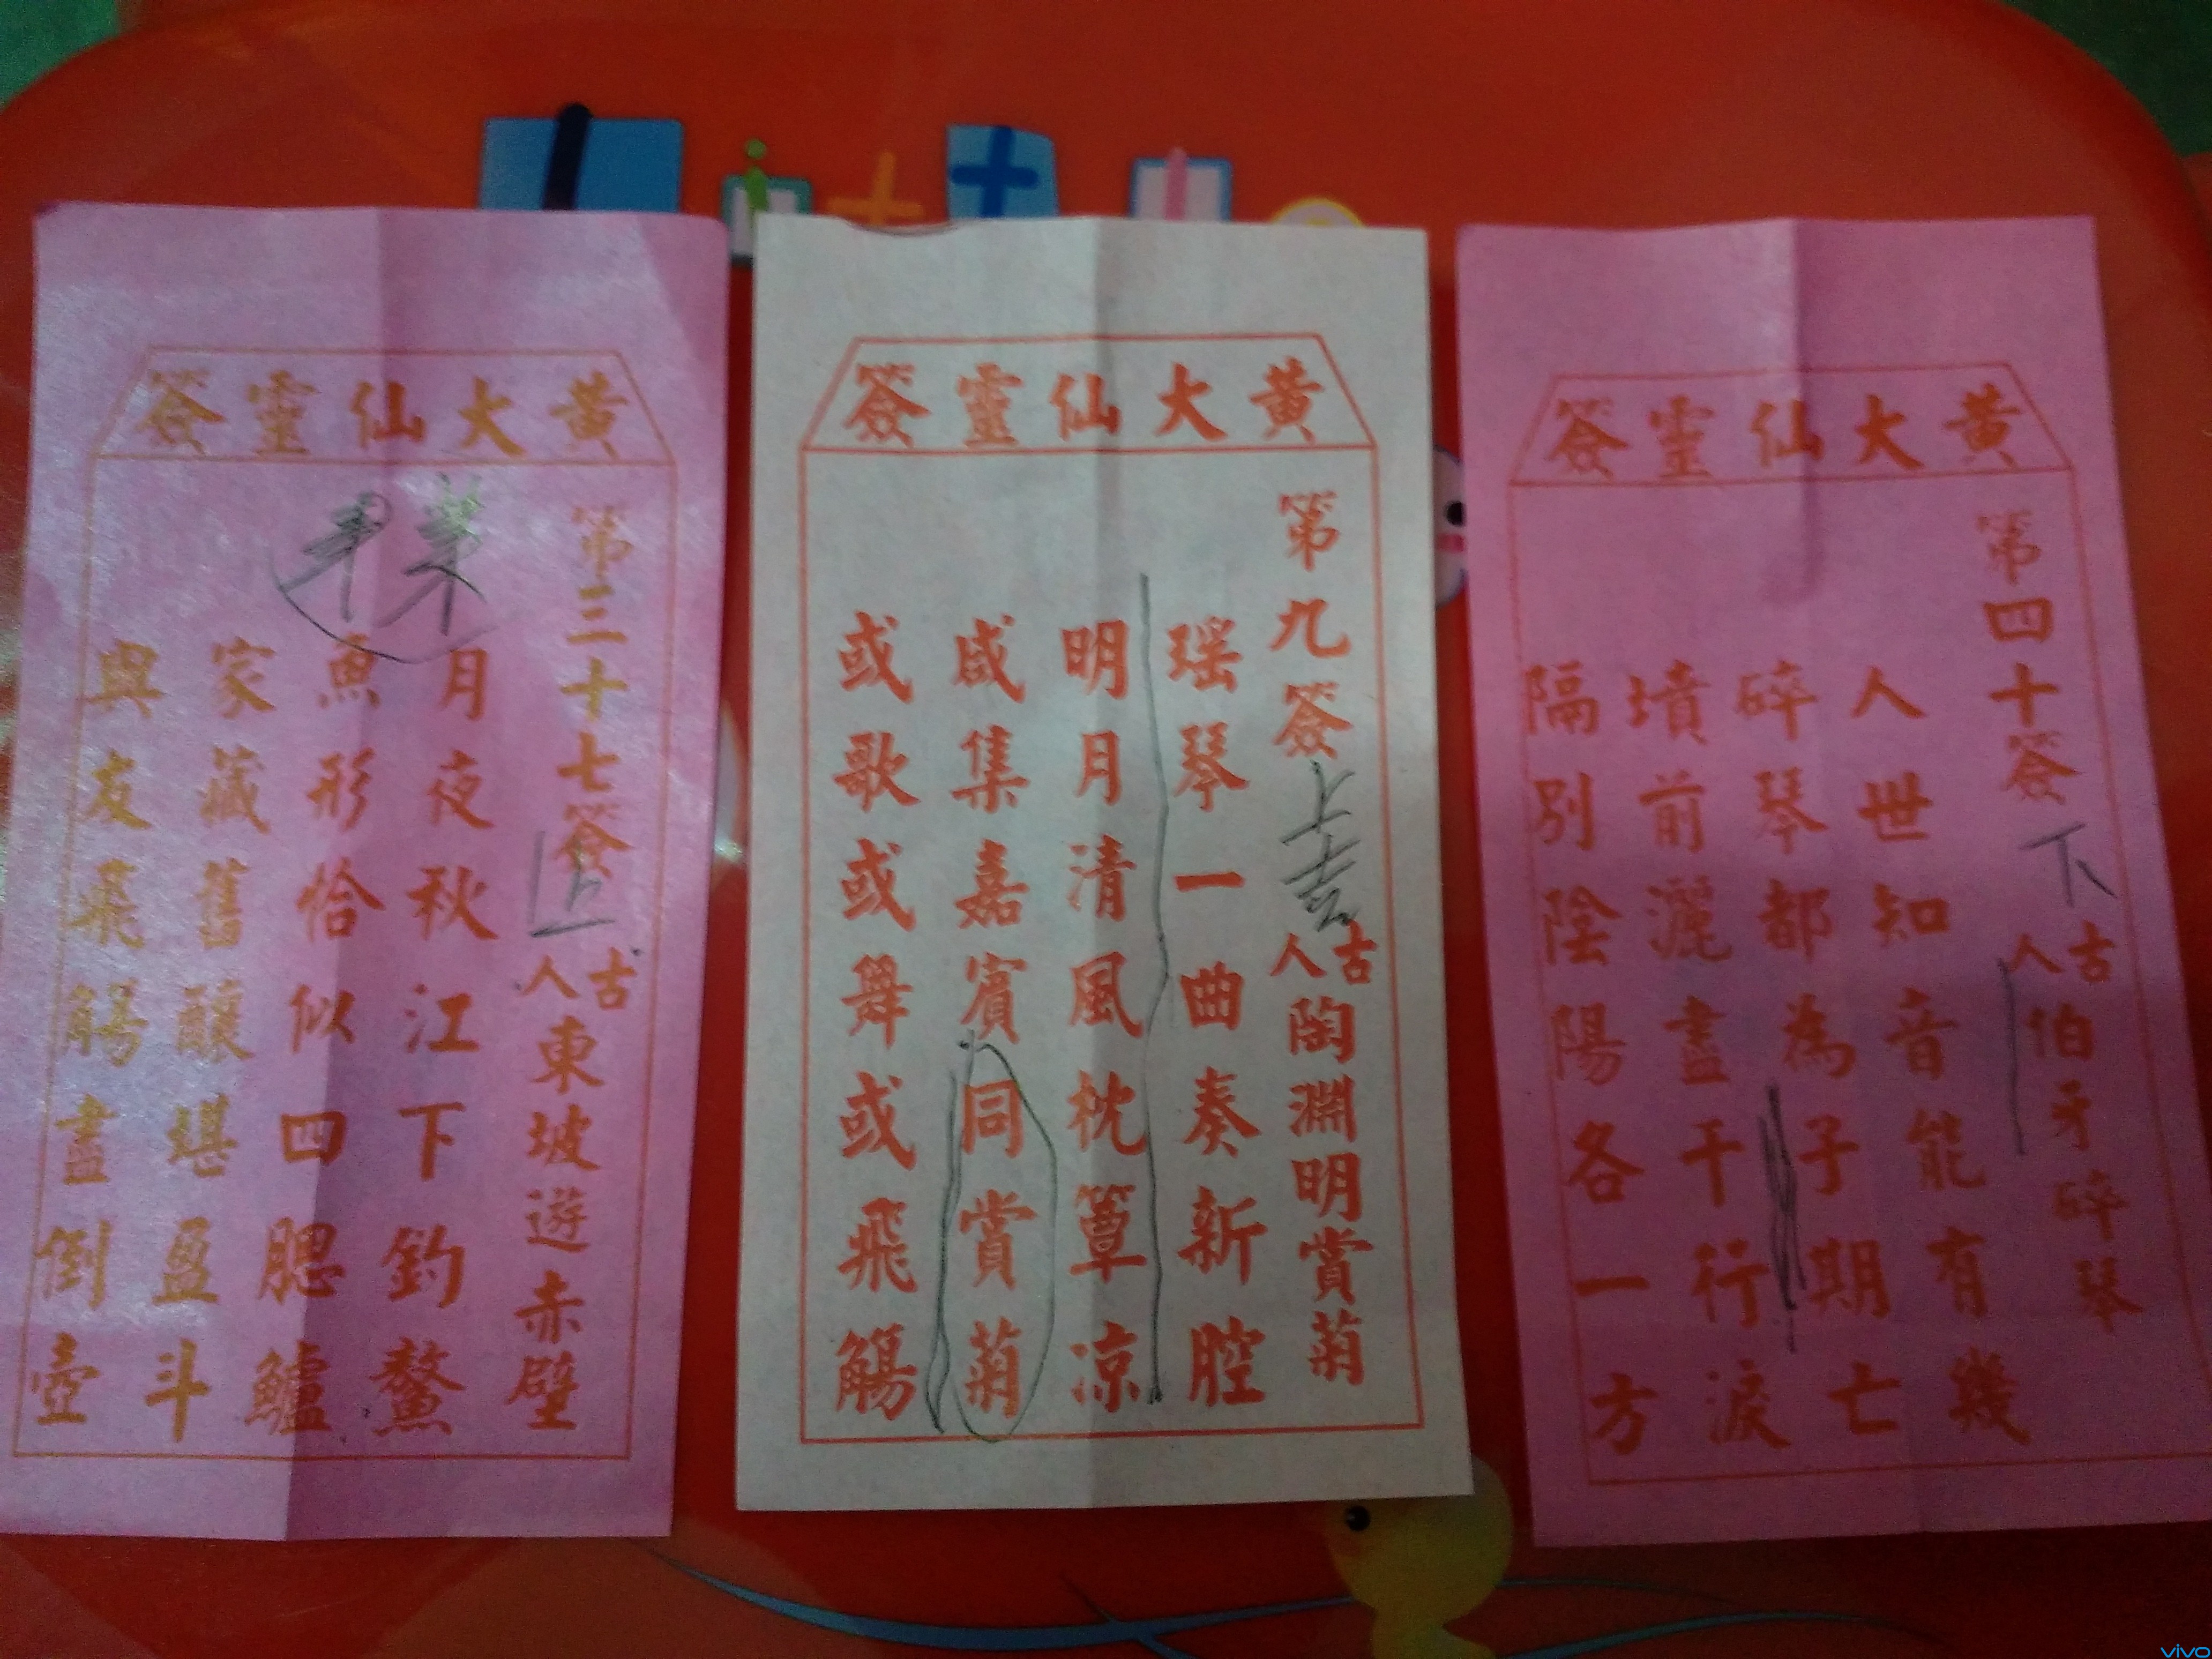 黃大仙靈簽
第三十七簽
上
古人東坡遊赤壁
月夜秋江下釣鰲
魚形恰似四腮鱸
家藏舊釀堪盈斗
與友飛觴盡倒壺
黃大仙靈簽
第九簽
上吉
古人陶淵明賞菊
瑤琴一曲奏新腔
明月清風枕簟凉
咸集嘉賓同賞菊
或歌或舞或飛觴
黃大仙靈簽
第四十簽
下
古人伯牙碎琴
人世知音能有幾
碎琴都為子期亡
墳前灑盡千行淚
隔別陰陽各一方
vivo